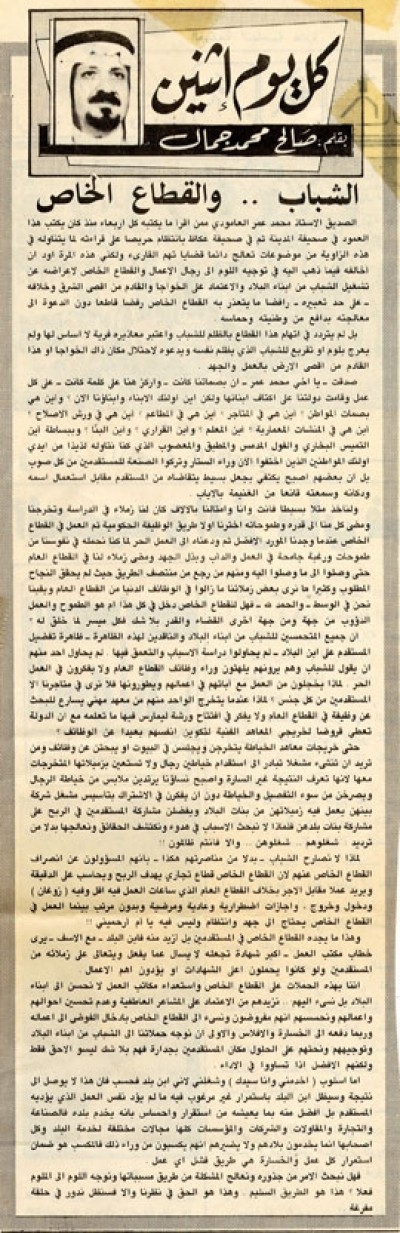 كل يوم إثنين
بقلم : صالح محمد جمال
الشباب .. والقطاع الخاص
الصديق الاستاذ محمد عمر العامودي ممن اقرا ما يكتبه كل اربعاء منذ كان يكتب هذا
العمود في صحيفة المدينة ثم في صحيفة عكاظ بانتظام حريصا على قراءته لما يتناوله في
هذه الزاوية من موضوعات تعالج دائما قضايا تهم القارىء ولكني هذه المرة اود ان
اخالفه فيما ذهب اليه في توجيه اللوم الى رجال الاعمال والقطاع الخاص لاعراضه عن
تشغيل الشباب من ابناء البلاد والاعتماد على الخواجا والقادم من اقصى الشرق وخلافه
ـ على حد تعبيره ـ رافضا ما يتعذر به القطاع الخاص رفضا قاطعا دون الدعوة الى
معالجته بدافع من وطنيته وحماسه .
بل لم يتردد في اتهام هذا القطاع بالظلم للشباب واعتبر معاذيره فرية لا اساس لها ولم
يعرج بلوم او تقريع للشباب الذي يظلم نفسه ويدعوه لاحتلال مكان ذاك الخواجا او هذا
القادم من اقصى الارض بالعمل والجهد .
صدقت ـ يا اخي محمد عمر ـ ان بصماتنا كانت ـ واركز هنا على كلمة كانت ـ على كل
عمل وقامت دولتنا على اكتاف ابنائها ولكن اين اولئك الابناء وابناؤنا الان ؟ واين هي
بصمات المواطن ؟ اين هي في المتاجر ؟ اين هي في المطاعم ؟ اين هي في ورش الاصلاح ؟
اين هي في المنشات المعمارية ؟ اين المعلم ؟ واين القراري ؟ واين البنا ؟ وببساطة اين
التميس البخاري والفول المدمس والمطبق والمعصوب الذي كنا نتاوله لذيذا من ايدي
اولئك المواطنين الذين اختفوا الان وراء الستار وتركوا الصنعة للمستقدمين من كل صوب
بل ان بعضهم اصبح يكتفي بجعل بسيط يتقاضاه من المستقدم مقابل استعمال اسمه
ودكانه وسمعته قانعا من الغنيمة بالاياب .
ولناخذ مثلا بسيطا فانت وانا وامثالنا بالالاف كان لنا زملاء في الدراسة وتخرجنا
ومضى كل منا الى قدره وطموحاته اخترنا اولا طريق الوظيفة الحكومية ثم العمل في القطاع
الخاص عندما وجدنا المورد الافضل ثم ودعناه الى العمل الحر لما كنا نحمله في نفوسنا من
طموحات ورغبة جامحة في العمل والداب وبذل الجهد ومضى زملاء لنا في القطاع العام
حتى وصلوا الى ما وصلوا اليه ومنهم من رجع من منتصف الطريق حيث لم يحقق النجاح
المطلوب وكثيرا ما نرى بعض زملائنا ما زالوا في الوظائف الدنيا من القطاع العام وبقينا
نحن في الوسط ـ والحمد لله ـ فهل للقطاع الخاص دخل في كل هذا ام هو الطموح والعمل
الدؤوب من جهة ومن جهة اخرى القضاء والقدر بلا شك فكل ميسر لما خلق له ؟
ان جميع المتحمسين للشباب من ابناء البلاد والناقدين لهذه الظاهرة ـ ظاهرة تفضيل
المستقدم على ابن البلاد ـ لم يحاولوا دراسة الاسباب والتعمق فيها . لم يحاول احد منهم
ان يقول للشباب وهم يرونهم يلهثون وراء وظائف القطاع العام ولا يفكرون في العمل
الحر لماذا يخجلون من العمل مع ابائهم في اعمالهم ويطورونها فلا نرى في متاجرنا الا
المستقدمين من كل جنس ؟ لماذا عندما يتخرج الواحد منهم من معهد مهني يسارع للبحث
عن وظيفة في القطاع العام ولا يفكر في افتتاح ورشة ليمارس فيها ما تعلمه مع ان الدولة
تعطي قروضا لخريجي المعاهد الفنية لتكوين انفسهم بعيدا عن الوظائف ؟
حتى خريجات معاهد الخياطة يتخرجن ويجلسن في البيوت او يبحثن عن وظائف ومن
تريد ان تنشيء مشغلا تبادر الى استقدام خياطين رجال ولا تستعين بزميلاتها المتخرجات
معها لانها تعرف النتيجة غير السارة واصبح نساؤنا يرتدين ملابس من خياطة الرجال
ويصرخن من سوء التفصيل والخياطة دون ان يفكرن في الاشتراك بتاسيس مشغل شركة
بينهن يعمل فيه زميلاتهن من بنات البلاد ويفضلن مشاركة المستقدمين في الربح على
مشاركة بنات بلدهن فلماذا لا نبحث الاسباب في هدوء ونكتشف الحقائق ونعالجها بدلا من
ترديد : شغلوهم .. شغلوهن .. والا فانتم ظالمون !!
لماذا لا نصارح الشباب ـ بدلا من مناصرتهم هكذا ـ بانهم المسؤولون عن انصراف
القطاع الخاص عنهم لان القطاع الخاص قطاع تجاري يهدف الربح ويحاسب على الدقيقة
ويريد عملا مقابل الاجر بخلاف القطاع العام الذي ساعات العمل فيه اقل وفيه ( زوغان )
ودخول وخروج ، واجازات اضطرارية وعادية ومرضية وبدون مرتب بينما العمل في
القطاع الخاص يحتاج الى جهد وانتظام وليس فيه يا ام ارحميني !!
وهذا ما يجده القطاع الخاص في المستقدمين بل ازيد منه فابن البلد ـ مع الاسف ـ يرى
خطاب مكتب العمل ـ اكبر شهادة تجعله لا يسال عما يفعل ويتعالى على زملائه من
المستقدمين ولو كانوا يحملون اعلى الشهادات او يؤدون اهم الاعمال .
اننا بهذه الحملات على القطاع الخاص واستعداء مكاتب العمل لا نحسن الى ابناء
البلاد بل نسيء اليهم .. نزيدهم من الاعتماد على المشاعر العاطفية وعدم تحسين احوالهم
واعمالهم ونحسسهم انهم مفروضون ونسيء الى القطاع الخاص بادخال الفوضى الى اعماله
وربما دفعه الى الخسارة والافلاس والاولى ان نوجه حملاتنا الى الشباب من ابناء البلاد
وتوجيههم ونحثهم على الحلول مكان المستقدمين بجدارة فهم بلا شك ليسو الاحق فقط
ولكنهم الافضل اذا تساووا في الاداء .
اما اسلوب ( اخدمني وانا سيدك ) وشغلني لاني ابن بلد فحسب فان هذا لا يوصل الى
نتيجة وسيظل ابن البلد باستمرار غير مرغوب فيه ما لم يؤد نفس العمل الذي يؤديه
المستقدم بل افضل منه بما يعيشه من استقرار واحساس بانه يخدم بلده فالصناعة
والتجارة والمقاولات والشركات والمؤسسات كلها مجالات مختلفة لخدمة البلد وكل
اصحابها انما يخدمون بلادهم ولا يضيرهم انهم يكسبون من وراء ذلك فالمكسب هو ضمان
استمرار كل عمل والخسارة هي طريق فشل اي عمل .
فهل نبحث الامر من جذوره ونعالج المشكلة من طريق مسبباتها ونوجه اللوم الى الملوم
فعلا ؟ هذا هو الطريق السليم . وهذا هو الحق في نظرنا والا فسنظل ندور في حلقة
مفرغة